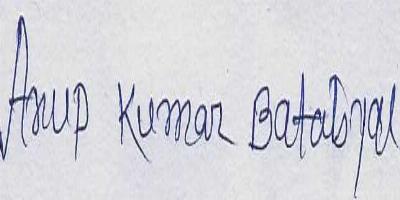 Anup Kumar Batabyal